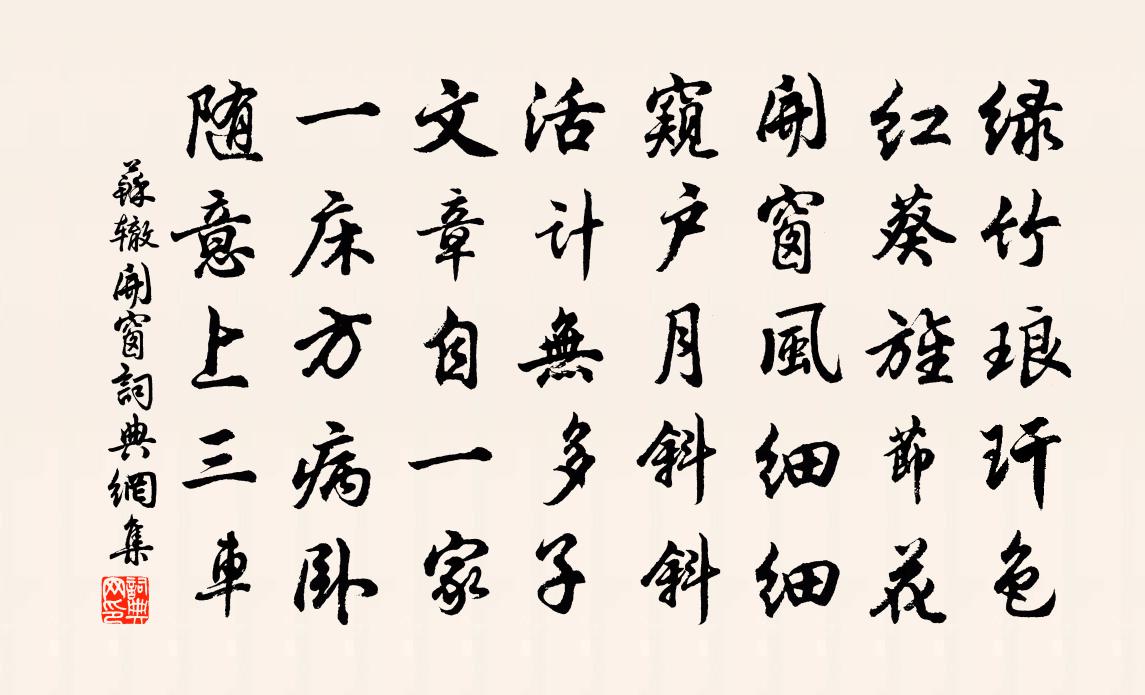 绿竹琅玕色
红葵旌節花
開窗風细细
窺户月斜斜
活计無多子
文章自一家
一床方病卧
随意上三車
蘇辙開窗詞典網集
詞典网印